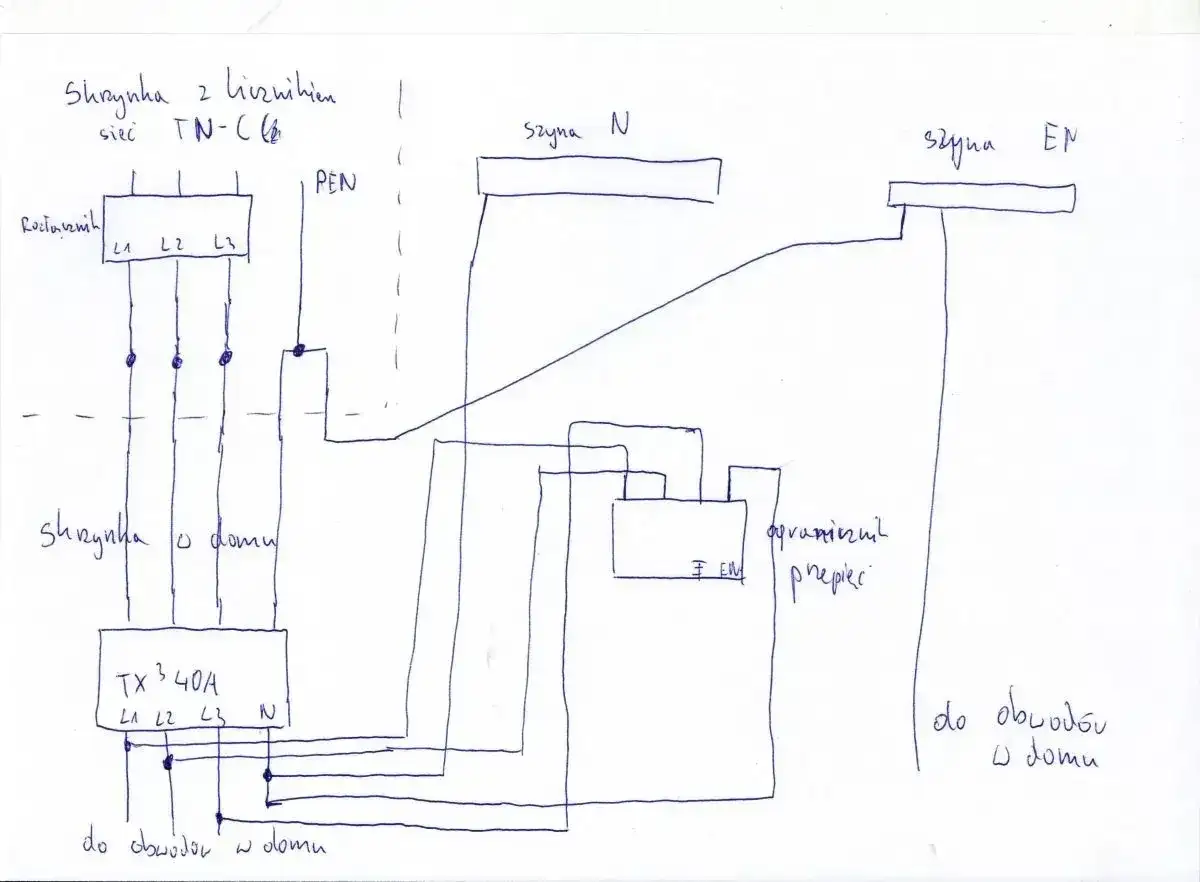 Skrzynka z licznikiem
sieć TN-C
szyna N
szyna EN
PEN
Rozłącznik
L1 L2 L3
Skrzynka w domu
ogranicznik
przepięć
EN
TX³ 40A
L1 L2 L3 N
do obwodów
w domu
do obwodów w domu